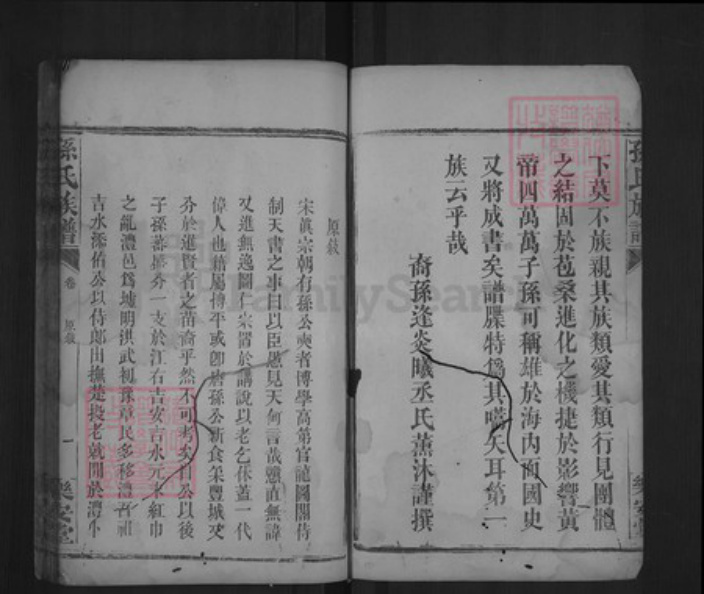 下莫不族親其族類愛其類行見團體
之結固於苞桑進化之機捷於影響黃
帝四萬萬子孫可稱雄於海內而國史
又將成書矣譜牒特爲其嚆矢耳第一
族云乎哉
裔孫逢炎曦丞氏薰沐謹撰
孫氏族譜
樂安堂
原敍
宋眞宗朝有孫公奭者博學高第官龍圖閣侍
制天書之事曰以臣愚見天何言哉戇直無諱
又進無逸圖仁宗習於講說以老乞休蓋一代
偉人也籍屬博平或卽唐孫公新食采豐城
於進賢者之苗裔乎然不可考矣自公以後
子孫蕃衍分一支於江右吉安吉水元末紅巾
之亂澧邑爲墟明洪武初豫章民多移澧吾祖
吉水添佑公以侍郎由撫楚投老就閒於澧小
孫氏族譜
卷
原敍
一
樂安堂
FamilySearch